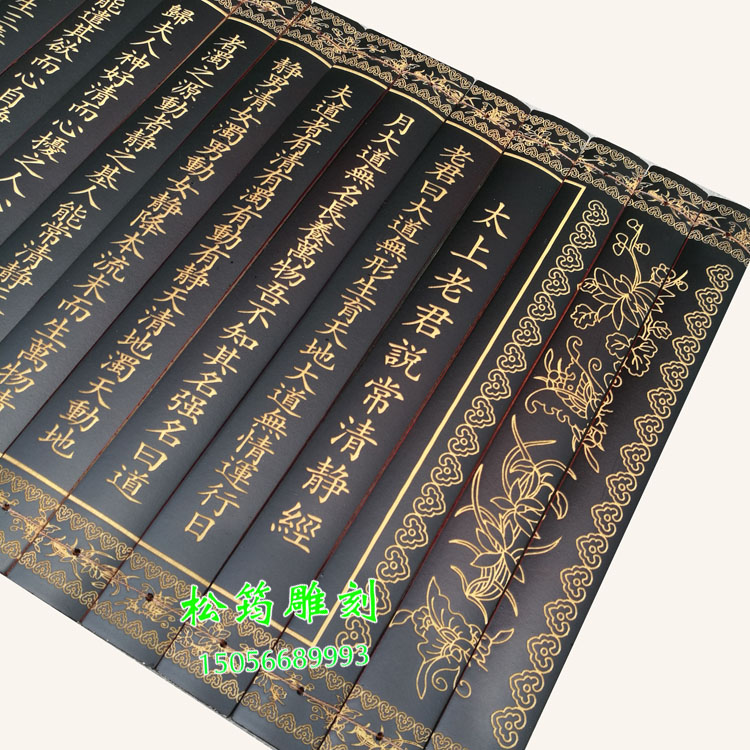 太上老君說常清靜經
老君曰大道無形生育天地大道無情運行日
月大道無名長養萬物吾不知其名強名曰道
夫道者有清有濁有動有靜天清地濁天動地
靜男清女濁男動女靜降本流末而生萬物清
者濁之源動者靜之基人能常清靜
歸夫人神好清而心擾之人
能遣其欲而心自
生三
松筠雕刻
15056689993